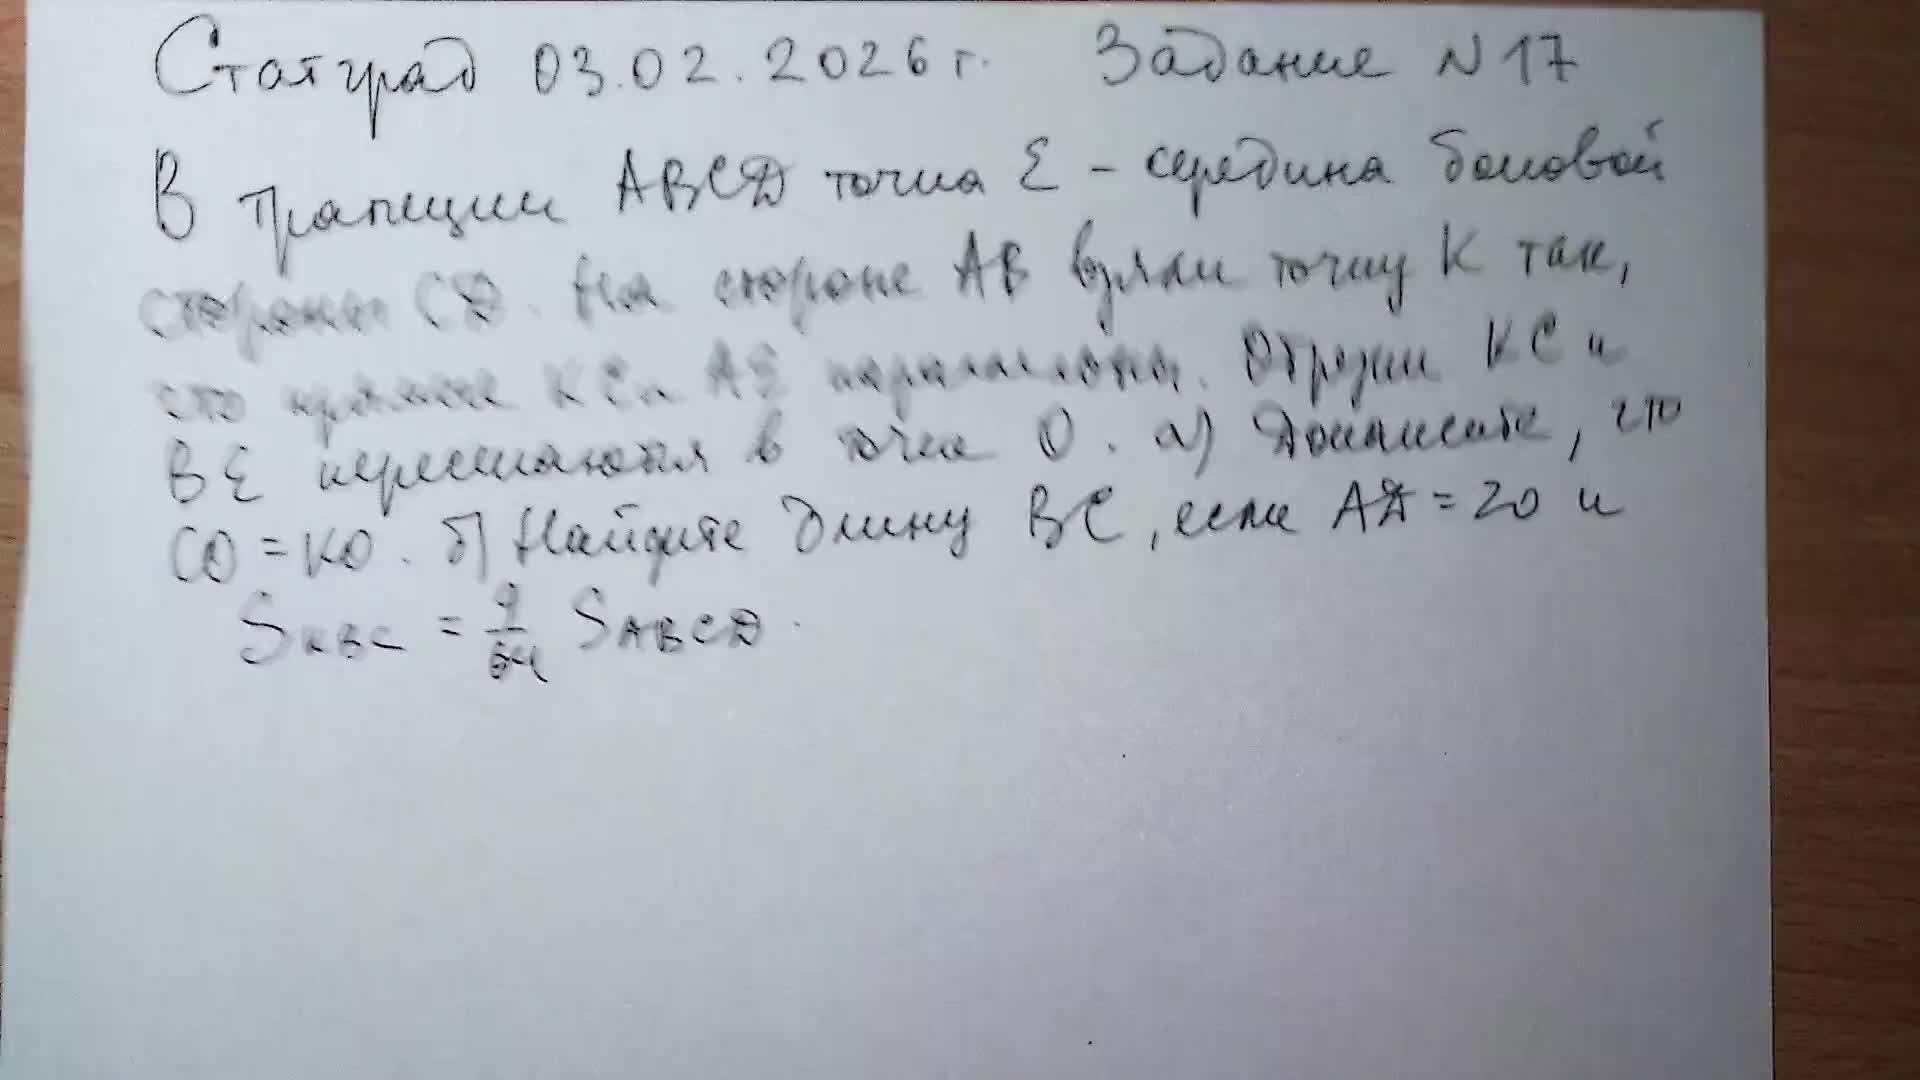 Статград 03.02.2026 г. Задание N 17
В трапеции ABCD точка E - середина боковой
стороны CD. На стороне AB взяли точку K так,
что прямые KC и AE параллельны. Отрезки KC и
BE пересекаются в точке O. а) Докажите, что
CO = KO. б) Найдите длину BC, если AD = 20 и
S KBC = 9/64 S ABCD.